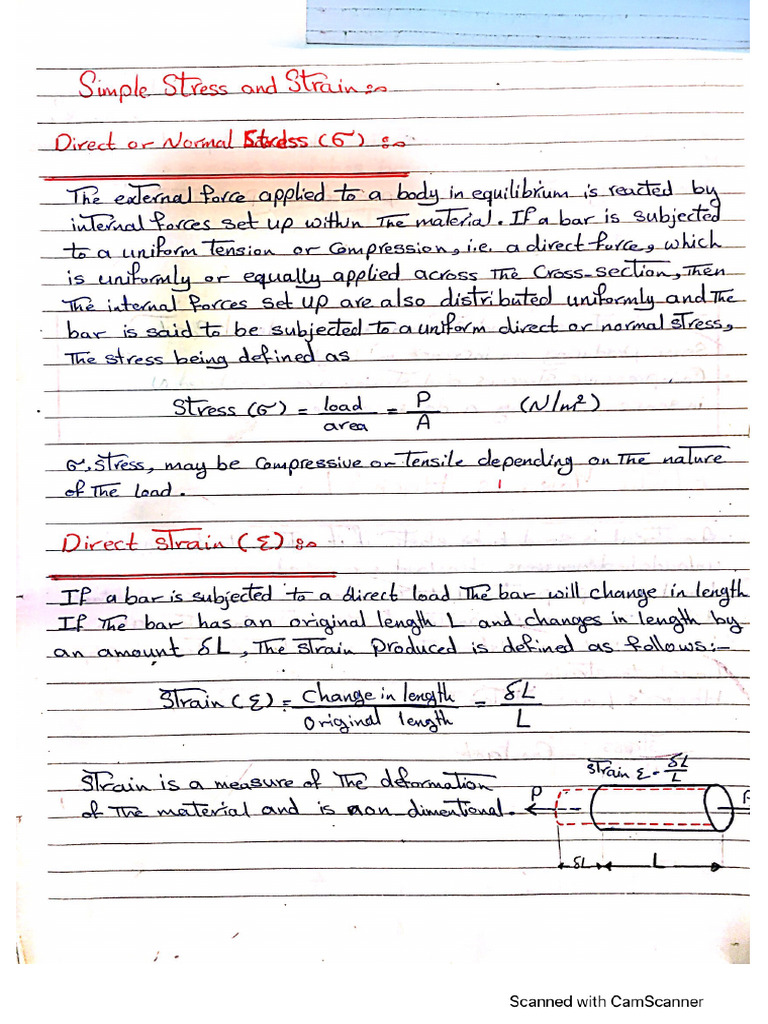 Simple Stress and Strain :-
Direct or Normal Stress (σ) :-
The external force applied to a body in equilibrium is reacted by
internal forces set up within The material. If a bar is subjected
to a uniform tension or compression, i.e. a direct force, which
is uniformly or equally applied across The Cross-section, Then
The internal forces set up are also distributed uniformly and The
bar is said to be subjected to a uniform direct or normal stress,
The stress being defined as
Stress (σ) = load/area = P/A (N/m²)
σ, stress, may be compressive or tensile depending on The nature
of The load.
Direct strain (ε) :-
If a bar is subjected to a direct load The bar will change in length
If The bar has an original length L and changes in length by
an amount δL, The strain Produced is defined as follows:-
Strain (ε) = Change in length/Original length = δL/L
Strain is a measure of The deformation
of The material and is non-dimentional.
Strain ε = δL/L
P
P
δL L
Scanned with CamScanner